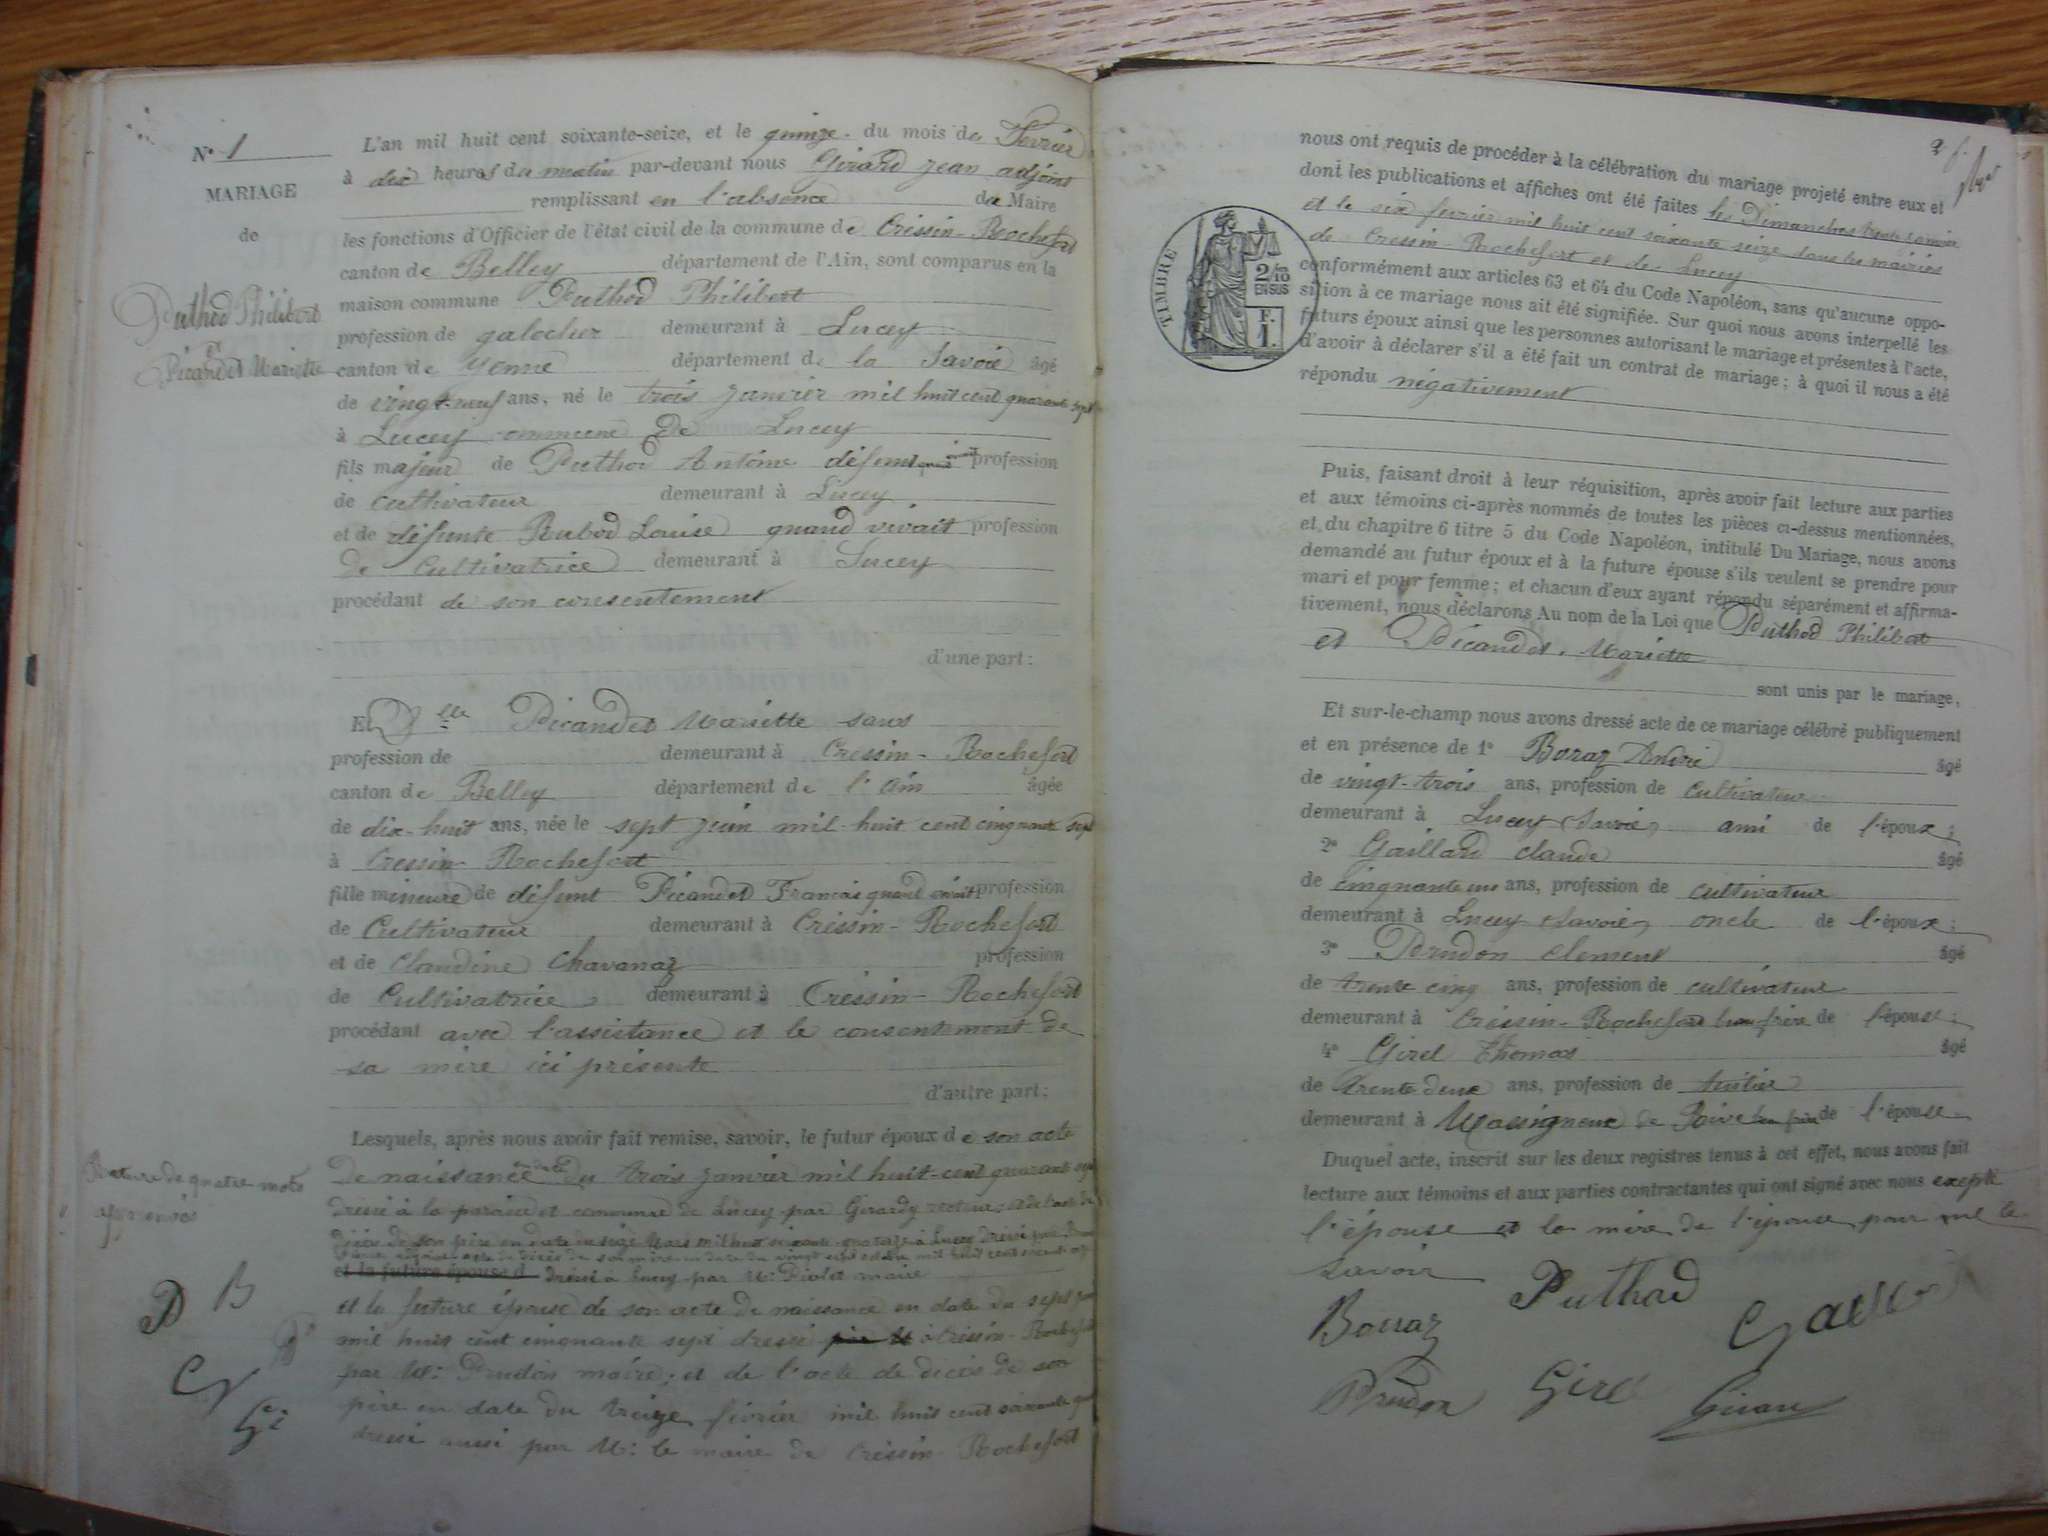 N° 1
MARIAGE
de
Puthod Philibert
et
Picandet Mariette
L'an mil huit cent soixante-seize, et le quinze du mois de Fevrier
à dix heures du matin par-devant nous Girard jean adjoint
remplissant en l'absence du Maire
les fonctions d'Officier de l'état civil de la commune de Cressin-Rochefort
canton de Belley département de l'Ain, sont comparus en la
maison commune Puthod Philibert
profession de galocher demeurant à Lucey
canton de Yenne département de la Savoie âgé
de vingt-neuf ans, né le trois janvier mil huit cent quarante sept
à Lucey commune de Lucey
fils majeur de Puthod Antoine défunt profession
de cultivateur demeurant à Lucey
et de défunte Rubod Louise quand vivait profession
de Cultivatrice demeurant à Lucey
procédant de son consentement
d'une part:
Et Dlle Picandet Mariette sans
profession de demeurant à Cressin-Rochefort
canton de Belley département de l'Ain âgée
de dix-huit ans, née le sept juin mil-huit cent cinquante sept
à Cressin-Rochefort
fille mineure de défunt Picandet Francois quand vivait profession
de Cultivateur demeurant à Cressin-Rochefort
et de Claudine Chavanaz profession
de Cultivatrice demeurant à Cressin-Rochefort
procédant avec l'assistance et le consentement de
sa mère ici présente
d'autre part:
Lesquels, après nous avoir fait remise, savoir, le futur époux de son acte
Rature de quatre mots
de naissance du trois janvier mil huit-cent quarante sept
dressé à la paroisse et commune de Lucey par Girardy recteur,
décès de son père en date
acte de décès de sa mère en date du vingt sept
et la future épouse d dressé à Lucey par Mr Piolet maire
et la future épouse de son acte de naissance en date du sept juin
mil huit cent cinquante sept dressé à Cressin-Rochefort
par Mr Prudon maire; et de l'acte de décès de son
père en date du treize février mil huit cent soixante
dressé aussi par Mr le maire de Cressin-Rochefort
P B
G
Gi
nous ont requis de procéder à la célébration du mariage projeté entre eux et
dont les publications et affiches ont été faites les Dimanches trente janvier
et le six fevrier mil huit cent soixante seize dans les mairies
de Cressin-Rochefort et de Lucey
TIMBRE
2/10
EN SUS
F.
1.
conformément aux articles 63 et 64 du Code Napoléon, sans qu'aucune oppo-
sition à ce mariage nous ait été signifiée. Sur quoi nous avons interpellé les
futurs époux ainsi que les personnes autorisant le mariage et présentes à l'acte,
d'avoir à déclarer s'il a été fait un contrat de mariage; à quoi il nous a été
répondu négativement
Puis, faisant droit à leur réquisition, après avoir fait lecture aux parties
et aux témoins ci-après nommés de toutes les pièces ci-dessus mentionnées,
et du chapitre 6 titre 5 du Code Napoléon, intitulé Du Mariage, nous avons
demandé au futur époux et à la future épouse s'ils veulent se prendre pour
mari et pour femme; et chacun d'eux ayant répondu séparément et affirma-
tivement, nous déclarons Au nom de la Loi que Puthod Philibert
et Picandet Mariette
sont unis par le mariage,
Et sur-le-champ nous avons dressé acte de ce mariage célébré publiquement
et en présence de 1° Boraz André âgé
de vingt-trois ans, profession de cultivateur
demeurant à Lucey (Savoie) ami de l'époux;
2° Gaillard claude âgé
de cinquante un ans, profession de cultivateur
demeurant à Lucey (Savoie) oncle de l'époux;
3° Prudon clement âgé
de trente cinq ans, profession de cultivateur
demeurant à Cressin-Rochefort beau frère de l'épouse;
4° Girel Thomas âgé
de trente deux ans, profession de
demeurant à Massigneux de Rive beau frère de l'épouse
Duquel acte, inscrit sur les deux registres tenus à cet effet, nous avons fait
lecture aux témoins et aux parties contractantes qui ont signé avec nous exepté
l'épouse et la mère de l'épouse pour ne le
savoir
Puthod
Borraz
Prudon Girel Girard